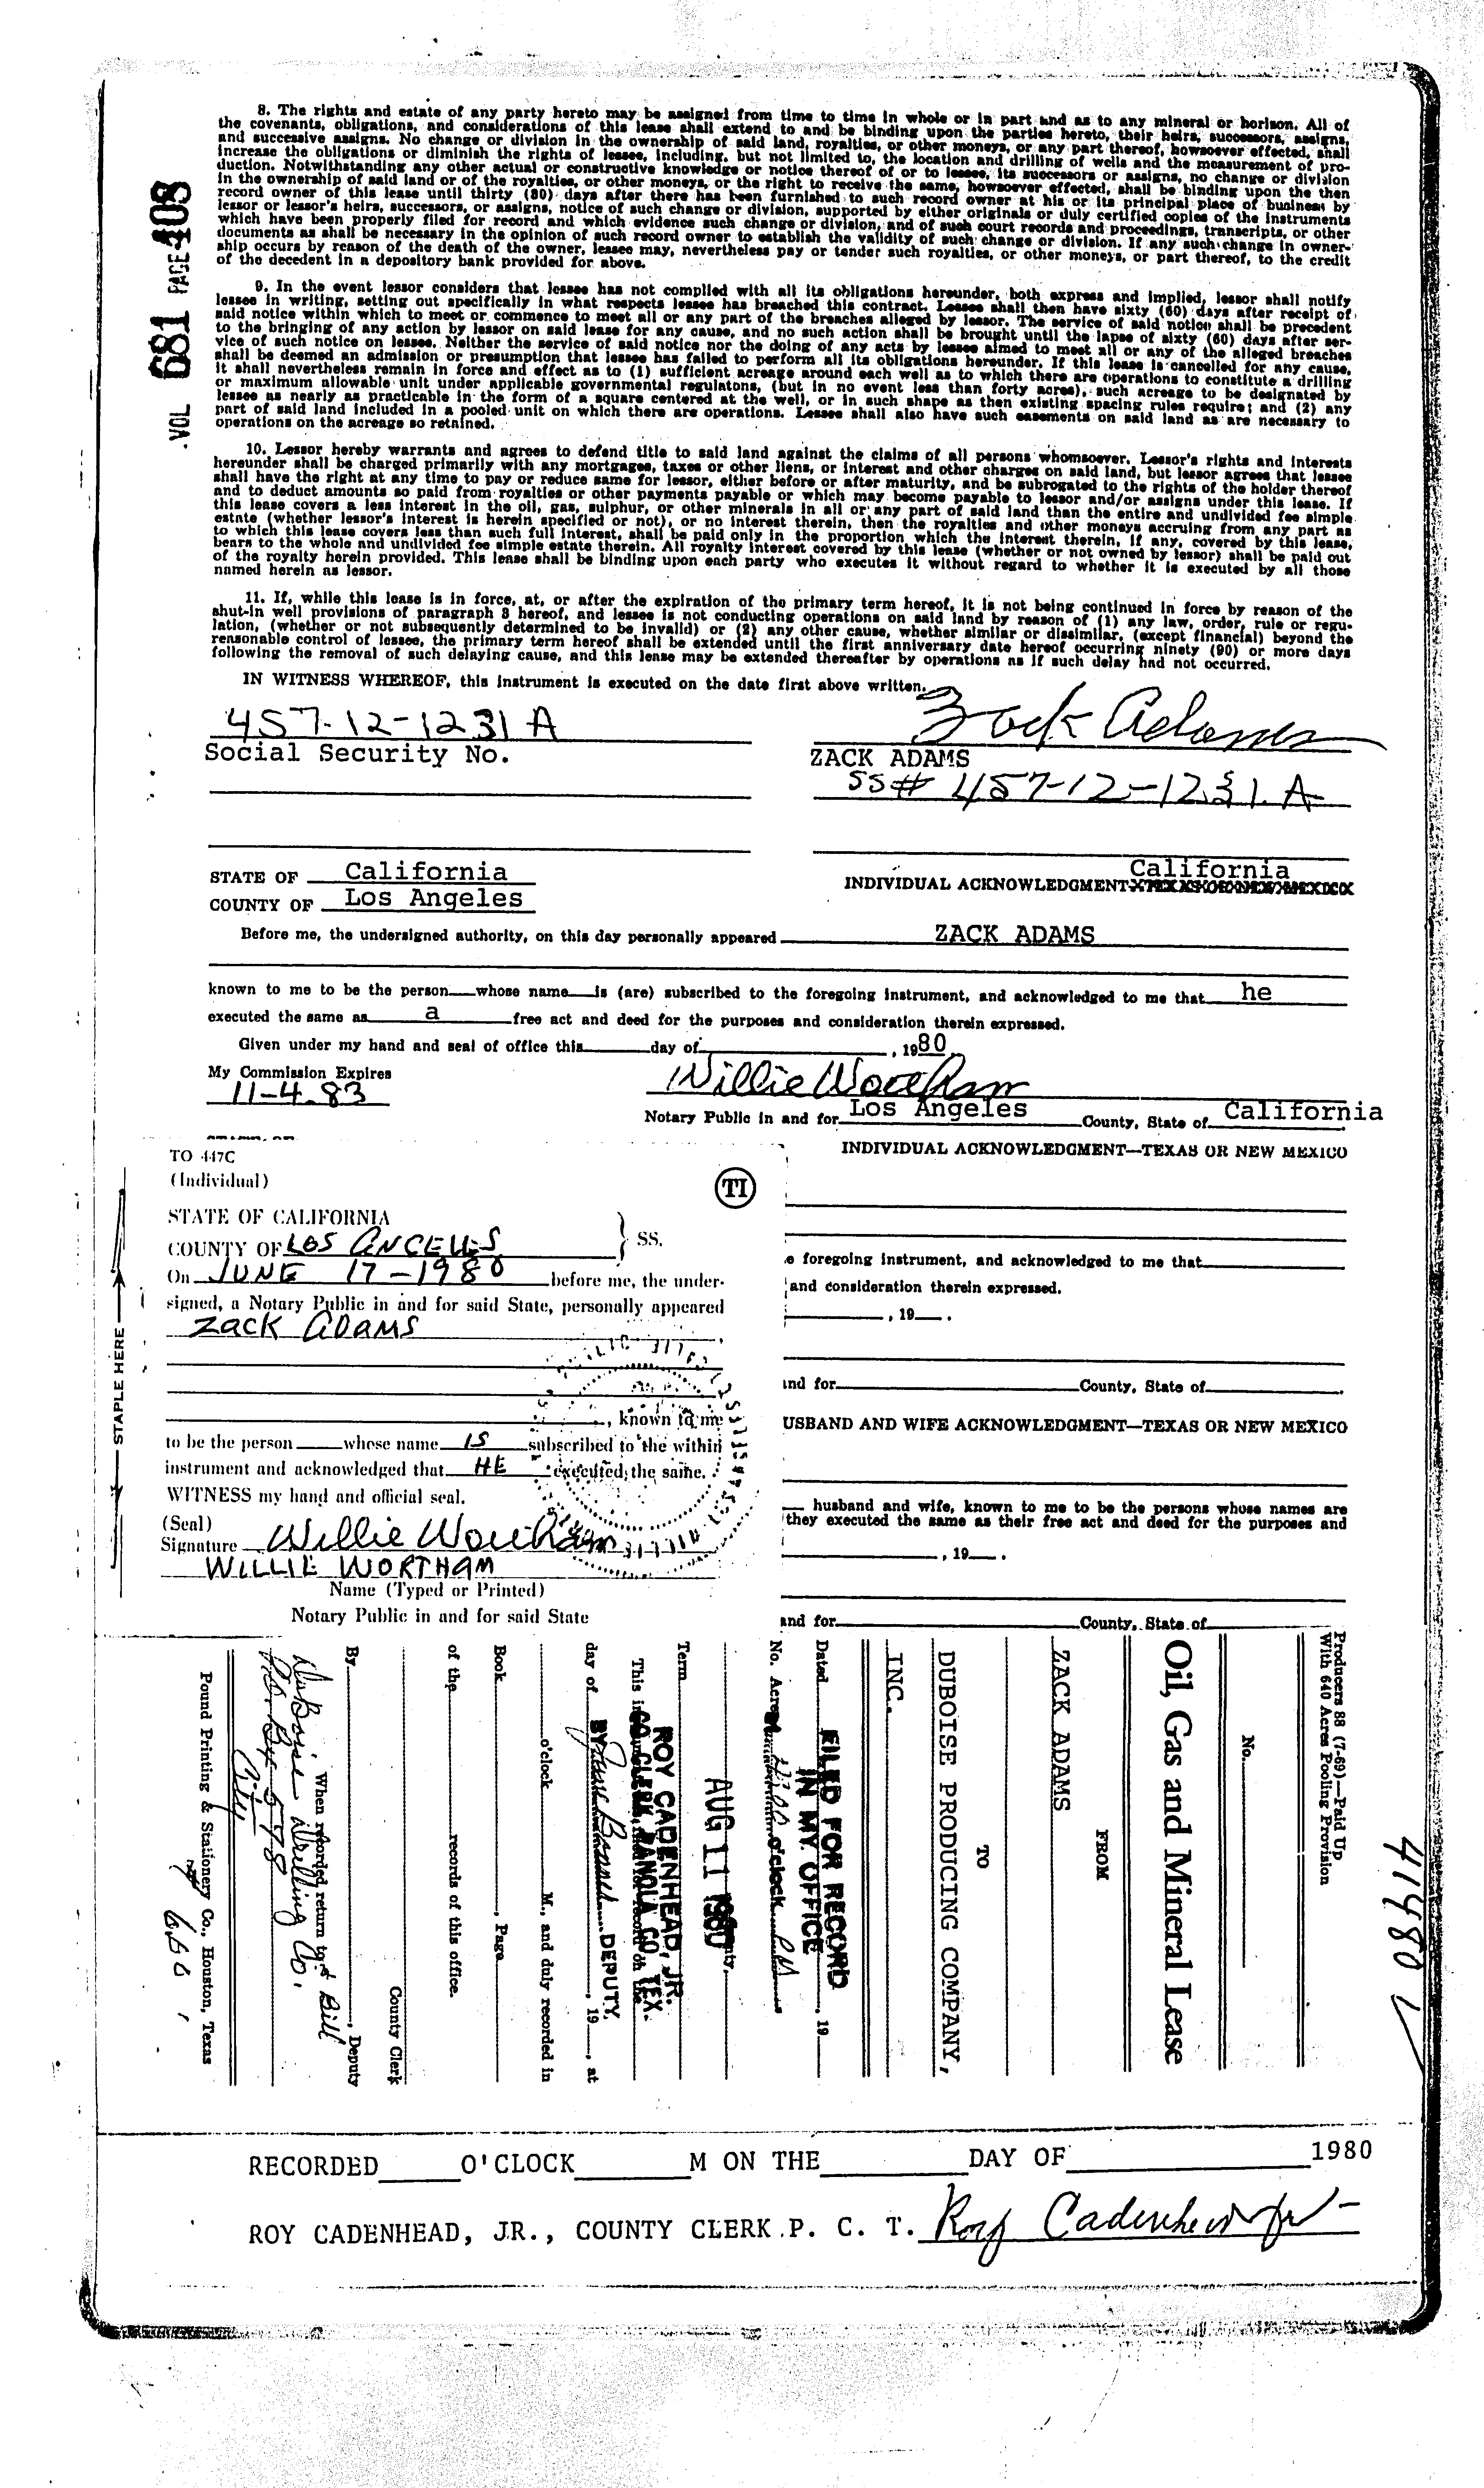 VOL 681 PAGE 408
8. The rights and estate of any party hereto may be assigned from time to time in whole or in part and as to any mineral or horizon. All of
the covenants, obligations, and considerations of this lease shall extend to and be binding upon the parties hereto, their heirs, successors, assigns,
and successive assigns. No change or division in the ownership of said land, royalties, or other moneys, or any part thereof, howsoever effected, shall
increase the obligations or diminish the rights of lessee, including, but not limited to, the location and drilling of wells and the measurement of pro-
duction. Notwithstanding any other actual or constructive knowledge or notice thereof of or to lessee, its successors or assigns, no change or division
in the ownership of said land or of the royalties, or other moneys, or the right to receive the same, howsoever effected, shall be binding upon the then
record owner of this lease until thirty (30) days after there has been furnished to such record owner at his or its principal place of business by
lessor or lessor's heirs, successors, or assigns, notice of such change or division, supported by either originals or duly certified copies of the instruments
which have been properly filed for record and which evidence such change or division, and of such court records and proceedings, transcripts, or other
documents as shall be necessary in the opinion of such record owner to establish the validity of such change or division. If any such change in owner-
ship occurs by reason of the death of the owner, lessee may, nevertheless pay or tender such royalties, or other moneys, or part thereof, to the credit
of the decedent in a depository bank provided for above.
9. In the event lessor considers that lessee has not complied with all its obligations hereunder, both express and implied, lessor shall notify
lessee in writing, setting out specifically in what respects lessee has breached this contract. Lessee shall then have sixty (60) days after receipt of
said notice within which to meet or commence to meet all or any part of the breaches alleged by lessor. The service of said notice shall be precedent
to the bringing of any action by lessor on said lease for any cause, and no such action shall be brought until the lapse of sixty (60) days after ser-
vice of such notice on lessee. Neither the service of said notice nor the doing of any acts by lessee aimed to meet all or any of the alleged breaches
shall be deemed an admission or presumption that lessee has failed to perform all its obligations hereunder. If this lease is cancelled for any cause,
it shall nevertheless remain in force and effect as to (1) sufficient acreage around each well as to which there are operations to constitute a drilling
or maximum allowable unit under applicable governmental regulatons, (but in no event less than forty acres), such acreage to be designated by
lessee as nearly as practicable in the form of a square centered at the well, or in such shape as then existing spacing rules require; and (2) any
part of said land included in a pooled unit on which there are operations. Lessee shall also have such easements on said land as are necessary to
operations on the acreage so retained.
10. Lessor hereby warrants and agrees to defend title to said land against the claims of all persons whomsoever. Lessor's rights and interests
hereunder shall be charged primarily with any mortgages, taxes or other liens, or interest and other charges on said land, but lessor agrees that lessee
shall have the right at any time to pay or reduce same for lessor, either before or after maturity, and be subrogated to the rights of the holder thereof
and to deduct amounts so paid from royalties or other payments payable or which may become payable to lessor and/or assigns under this lease. If
this lease covers a less interest in the oil, gas, sulphur, or other minerals in all or any part of said land than the entire and undivided fee simple
estate (whether lessor's interest is herein specified or not), or no interest therein, then the royalties and other moneys accruing from any part as
to which this lease covers less than such full interest, shall be paid only in the proportion which the interest therein, if any, covered by this lease,
bears to the whole and undivided fee simple estate therein. All royalty interest covered by this lease (whether or not owned by lessor) shall be paid out
of the royalty herein provided. This lease shall be binding upon each party who executes it without regard to whether it is executed by all those
named herein as lessor.
11. If, while this lease is in force, at, or after the expiration of the primary term hereof, it is not being continued in force by reason of the
shut-in well provisions of paragraph 3 hereof, and lessee is not conducting operations on said land by reason of (1) any law, order, rule or regu-
lation, (whether or not subsequently determined to be invalid) or (2) any other cause, whether similar or dissimilar, (except financial) beyond the
reasonable control of lessee, the primary term hereof shall be extended until the first anniversary date hereof occurring ninety (90) or more days
following the removal of such delaying cause, and this lease may be extended thereafter by operations as if such delay had not occurred.
IN WITNESS WHEREOF, this instrument is executed on the date first above written.
457-12-1231 A Zack Adams
Social Security No. ZACK ADAMS
SS# 457-12-1231. A
STATE OF California INDIVIDUAL ACKNOWLEDGMENT California
COUNTY OF Los Angeles
Before me, the undersigned authority, on this day personally appeared ZACK ADAMS
known to me to be the person whose name is (are) subscribed to the foregoing instrument, and acknowledged to me that he
executed the same as a free act and deed for the purposes and consideration therein expressed.
Given under my hand and seal of office this day of , 1980
My Commission Expires
11-4-83 Willie Wortham
Notary Public in and for Los Angeles County, State of California
INDIVIDUAL ACKNOWLEDGMENT—TEXAS OR NEW MEXICO
TO 447C
(Individual)
TI
STATE OF CALIFORNIA
COUNTY OF LOS ANGELES } SS.
On JUNE 17-1980 before me, the under-
signed, a Notary Public in and for said State, personally appeared
Zack ADAMS
, known to me
to be the person whose name IS subscribed to the within
instrument and acknowledged that HE executed the same.
WITNESS my hand and official seal.
(Seal)
Signature Willie Wortham
WILLIE WORTHAM
Name (Typed or Printed)
Notary Public in and for said State
STAPLE HERE
e foregoing instrument, and acknowledged to me that
and consideration therein expressed.
, 19 .
and for County, State of
USBAND AND WIFE ACKNOWLEDGMENT—TEXAS OR NEW MEXICO
husband and wife, known to me to be the persons whose names are
they executed the same as their free act and deed for the purposes and
, 19 .
and for County, State of
41480
Producers 88 (7-69)—Paid Up
With 640 Acres Pooling Provision
No.
Oil, Gas and Mineral Lease
FROM
ZACK ADAMS
TO
DUBOISE PRODUCING COMPANY,
INC.
Dated , 19
FILED FOR RECORD
IN MY OFFICE
No. Acres
o'clock P.M.
AUG 11 1980
Term
ROY CADENHEAD, JR.
CO. CLERK, PANOLA CO. TEX.
BY DEPUTY
day of , 19 , at
o'clock M., and duly recorded in
Book , Page
of the records of this office.
County Clerk
By , Deputy
When recorded return to Bill
DuBoise Drilling Co.
P.O. Box 578
City
Pound Printing & Stationery Co., Houston, Texas
6.00
RECORDED O'CLOCK M ON THE DAY OF 1980
ROY CADENHEAD, JR., COUNTY CLERK P. C. T. Roy Cadenhead Jr